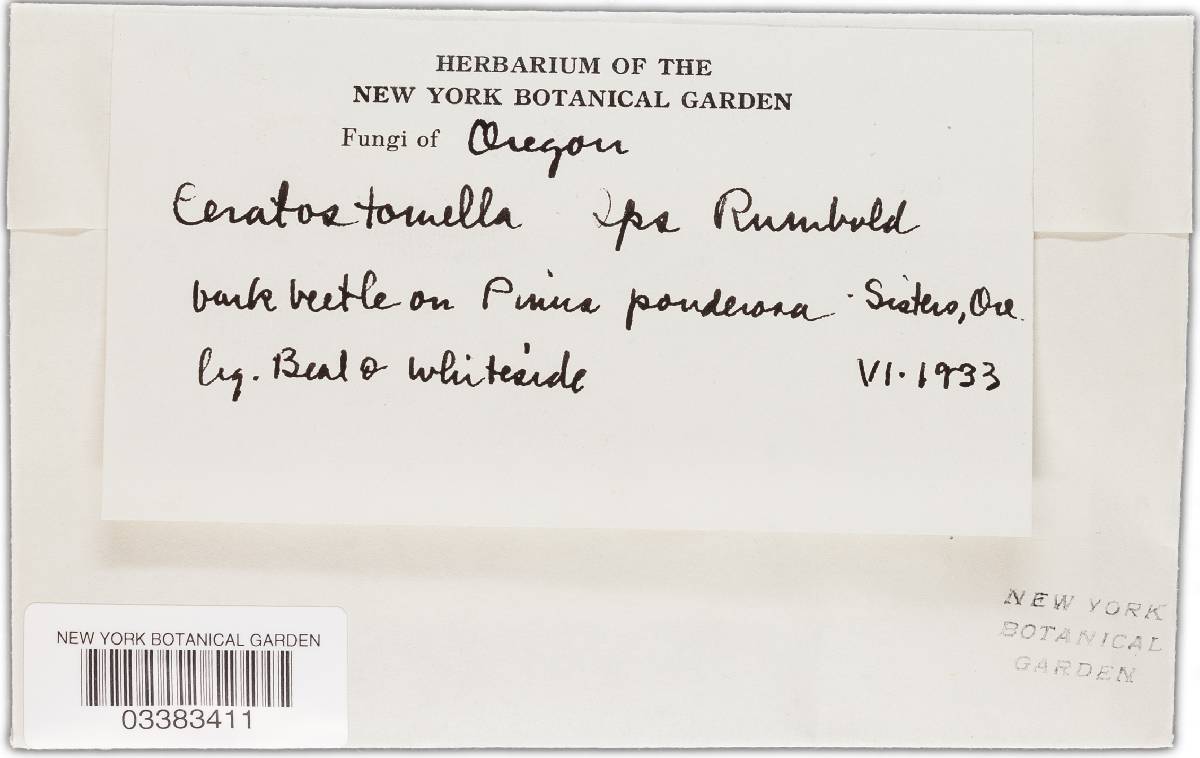 HERBARIUM OF THE
NEW YORK BOTANICAL GARDEN
Fungi of Oregon
Ceratostomella Ips Rumbold
bark beetle on Pinus ponderosa · Sisters, Ore.
leg. Beal & Whiteside VI·1933
NEW YORK
BOTANICAL
GARDEN
NEW YORK BOTANICAL GARDEN
03383411